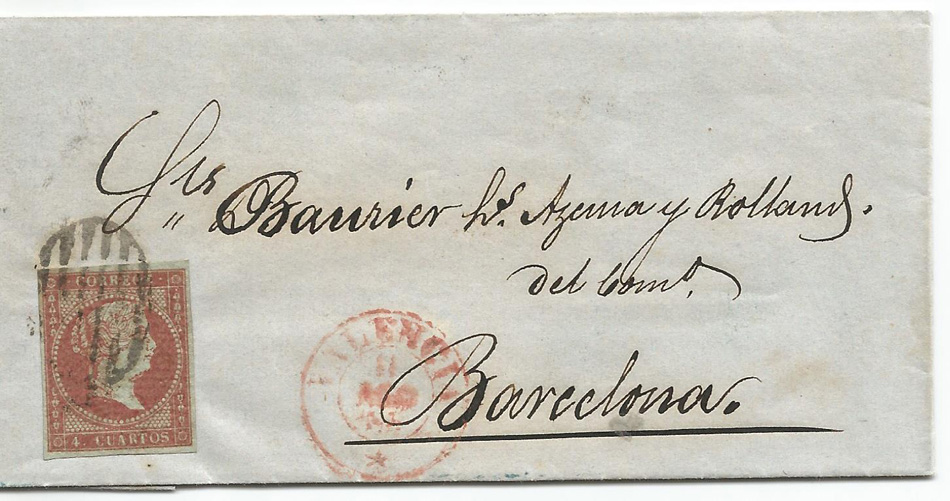 Sres
„ Baurier hs. Azema y Rolland.
del Como.
Barcelona.
CORREOS
4. CUARTOS
VALENCIA